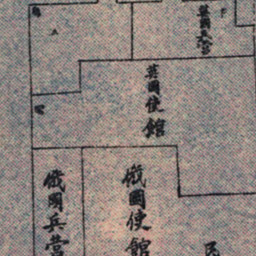 英國兵營
英國使館
俄國使館
俄國兵營
民